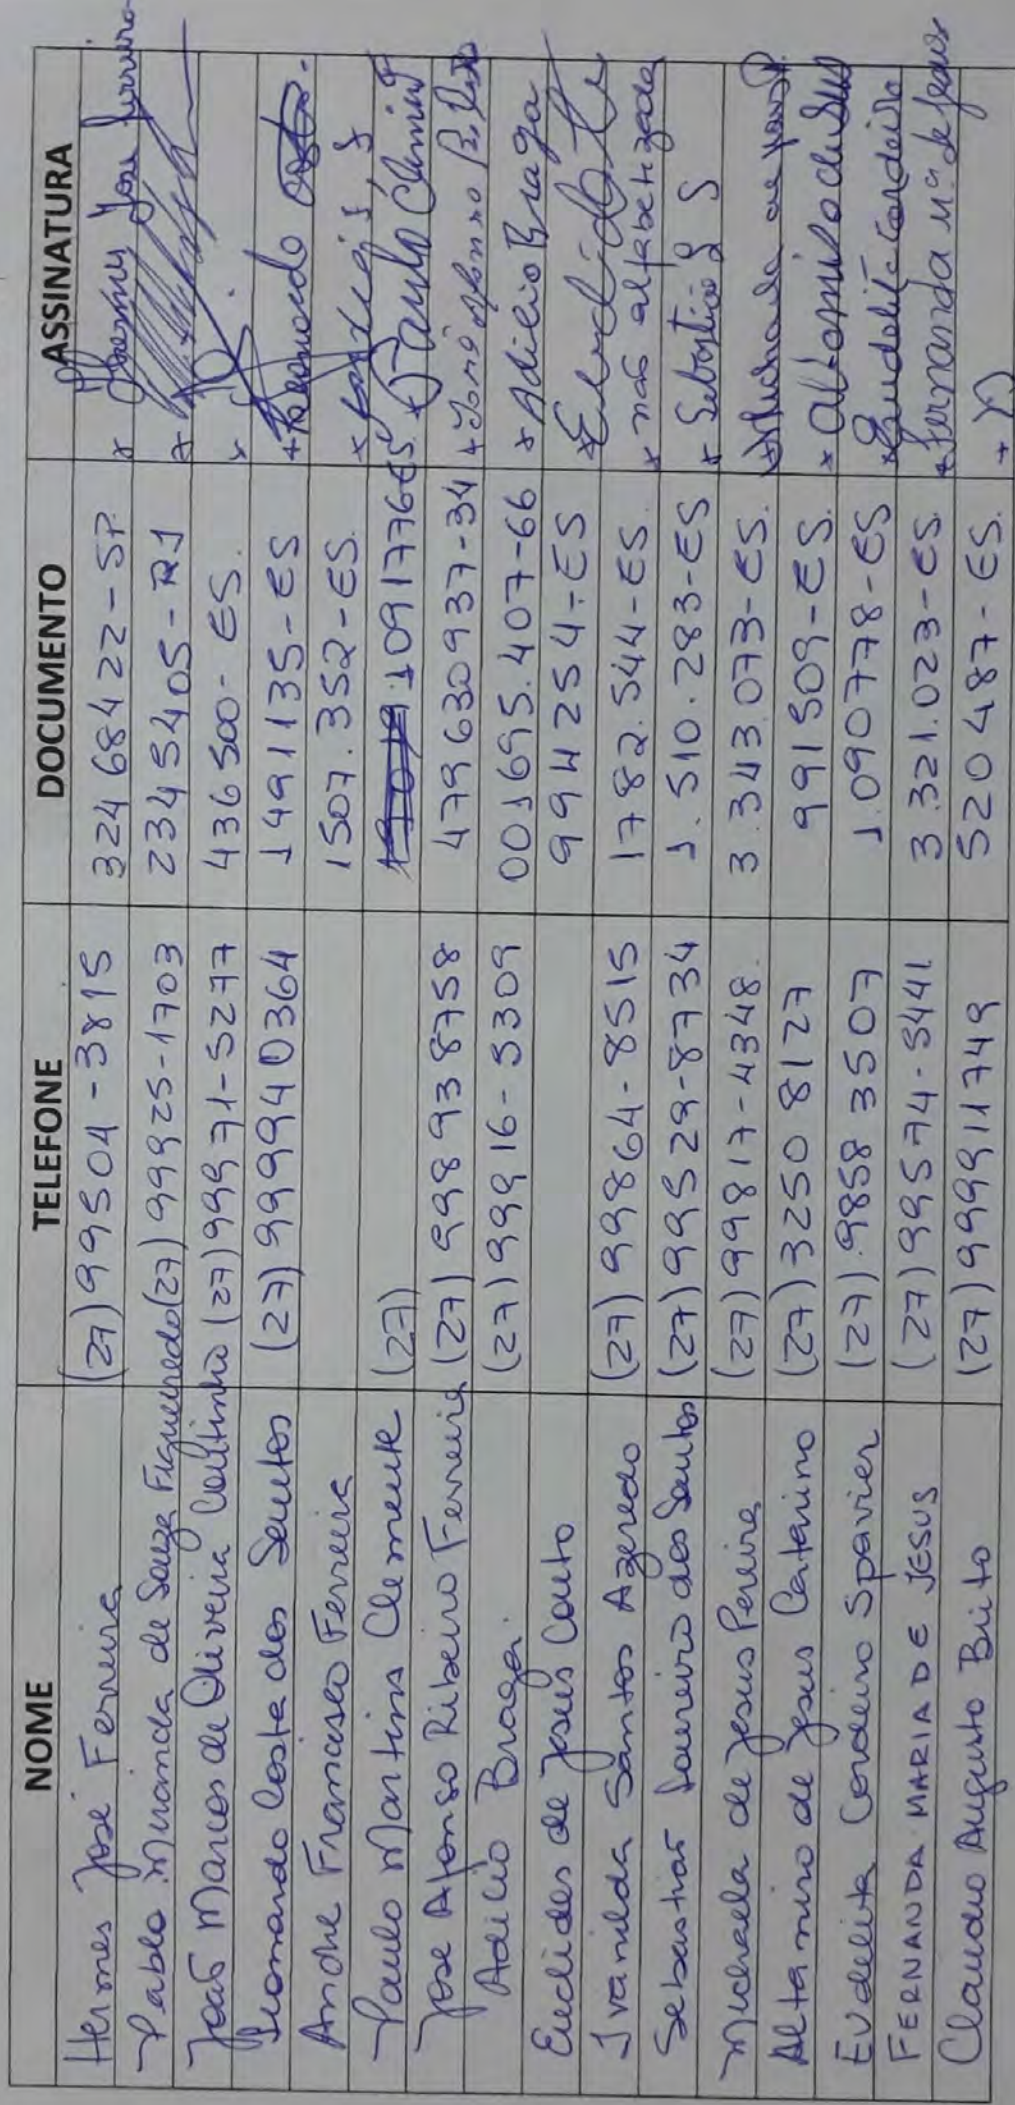 NOME TELEFONE DOCUMENTO ASSINATURA
Hermes José Ferreira (27) 99504-3815 32468422-SP. José Ferreira
Pablo Miranda de Souza Figueiredo (27) 99925-1703 2345405-RJ
João Marcos de Oliveira Coutinho (27) 99971-5277 436500-ES. x
Leonardo Costa dos Santos (27) 999940364 1491135-ES Leonardo
André Francisco Ferreira 1507.352-ES. x
Paulo Martins Clemente (27) 1091776ES. x Paulo
José Afonso Ribeiro Ferreira (27) 998938758 479630937-34 x José Afonso
Adilio Braga. (27) 99916-5309 001695.407-66 x Adilio Braga
Euclides de Jesus Couto 994254-ES x
Ivanilda Santos Azeredo (27) 99864-8515 1782.544-ES. x não alfabetizada
Sebastião Loureiro dos Santos (27) 99529-8734 1.510.283-ES x Sebastião L S
Michaela de Jesus Pereira (27) 99817-4348. 3.343.073-ES. x
Altamiro de Jesus Catarino (27) 3250 8127 991509-ES. x Altamiro de Jesus
Eudelita Cordeiro Spavier (27) 9858 3507 1.090778-ES x Eudelita Cordeiro
FERNANDA MARIA DE JESUS (27) 99574-5441 3.321.023-ES. x Fernanda Mª de Jesus
Claudio Augusto Brito (27) 999911749 520487-ES.